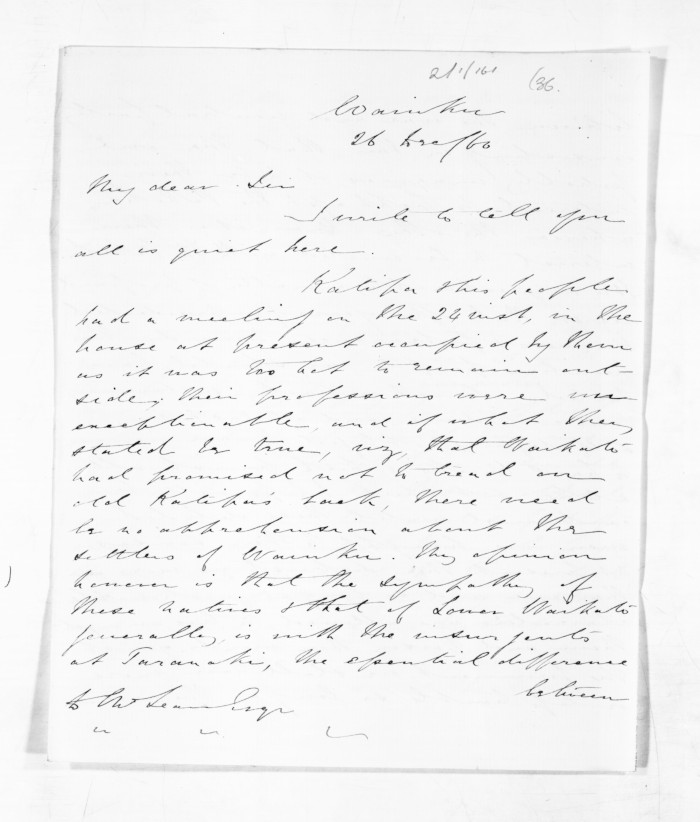 21/1/161 (36.
Waiuku
26 Dec/60
My dear Sir
I write to tell you
all is quiet here.
Katipa & his people
had a meeting on the 24 inst, in the
house at present occupied by them
as it was too hot to remain out-
side; their professions were un
exceptionable, and if what they
stated be true, viz, that Waikato
had promised not to tread on
old Katipa's back, there need
be no apprehension about the
settlers of Waiuku. My opinion
however is that the sympathy of
these natives & that of Lower Waikato
generally is with the insurgents
at Taranaki, the essential difference
between
D McLean Esqr